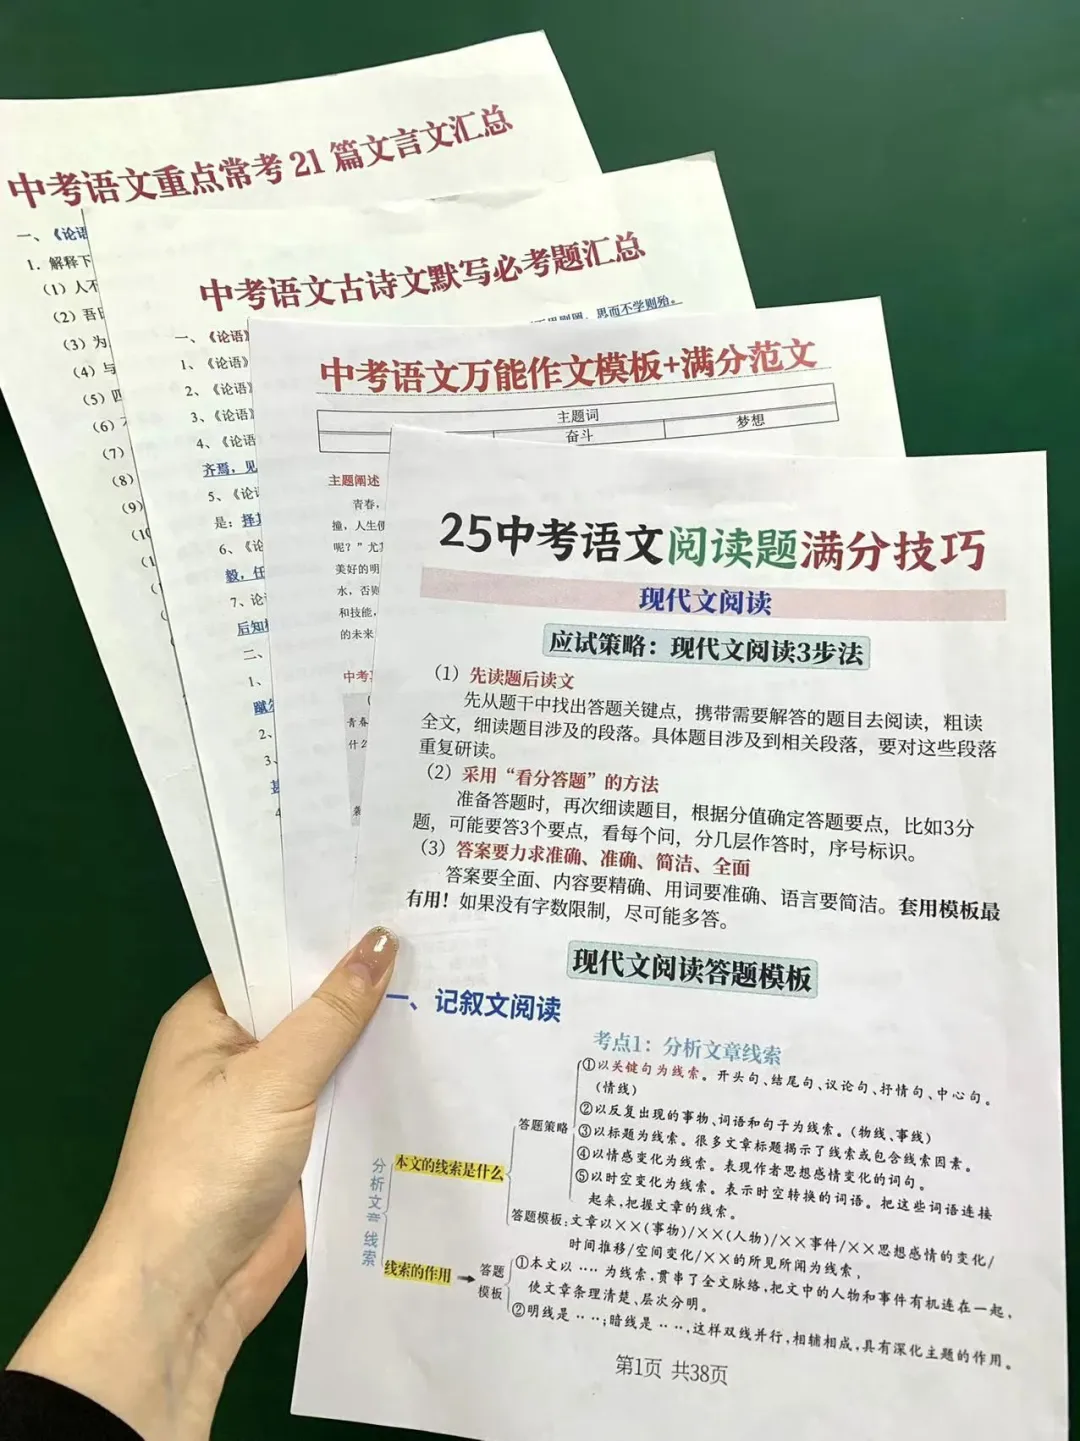 中考语文重点常考21篇文言文汇总
一、《论语
1. 解释下
(1) 人不
(2) 吾日
(3) 为
(4) 与
(5)
(6)
(7)
(8)
(9)
中考语文古诗文默写必考题汇总
思而不学则殆。
一、《论语》
1、《论语》
2、《论语》
3、《论语》
4、《论语
齐焉，见
5、《论语
是：择其
6、《论
毅，任
7、论
后知
二、
1、
2、
3、
4
中考语文万能作文模板+满分范文
主题词
奋斗
梦想
主题阐述
青春，
撞，人生便
呢？”尤其
美好的明
水，否则
和技能，
的未来
中考
青春
什么
25中考语文阅读题满分技巧
现代文阅读
应试策略：现代文阅读3步法
(1) 先读题后读文
先从题干中找出答题关键点，携带需要解答的题目去阅读，粗读
全文，细读题目涉及的段落。具体题目涉及到相关段落，要对这些段落
重复研读。
(2) 采用“看分答题”的方法
准备答题时，再次细读题目，根据分值确定答题要点，比如3分
题，可能要答3个要点，看每个问，分几层作答时，序号标识。
(3) 答案要力求准确、准确、简洁、全面
答案要全面、内容要精确、用词要准确、语言要简洁。套用模板最
有用！如果没有字数限制，尽可能多答。
现代文阅读答题模板
一、记叙文阅读
考点1：分析文章线索
分析文章线索
本文的线索是什么
答题策略
①以关键句为线索。开头句、结尾句、议论句、抒情句、中心句。
(情线)
②以反复出现的事物、词语和句子为线索。(物线、事线)
③以标题为线索。很多文章标题揭示了线索或包含线索因素。
④以情感变化为线索。表现作者思想感情变化的词句。
⑤以时空变化为线索。表示时空转换的词语。把这些词语连接
起来，把握文章的线索。
答题模板：文章以××(事物)/××(人物)/××事件/××思想感情的变化/
时间推移/空间变化/××的所见所闻为线索，
线索的作用
答题
模板
①本文以····为线索，贯串了全文脉络，把文中的人物和事件有机连在一起，
使文章条理清楚、层次分明。
②明线是····；暗线是····，这样双线并行，相辅相成，具有深化主题的作用。
第1页 共38页